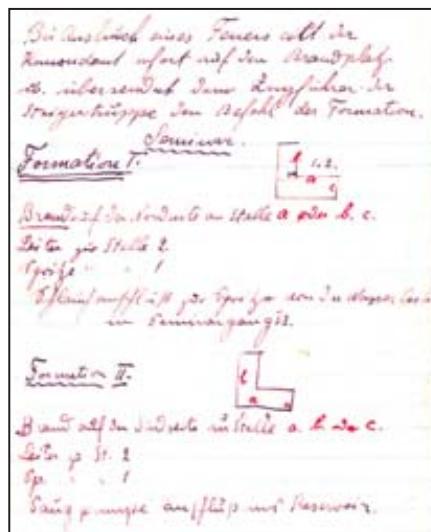 Bei Ausbruch eines Feuers eilt der
Komondant sofort auf den Brandplatz
u. übersendet dem Zugführer der
Steigertruppe den Befehl der Formation.
Seminar.
Formation I.
l 1.2.
a
c
Brand auf der Nordseite an Stelle a oder b. c.
Leiter zur Stelle 2
Spritze " " 1
Schlauchanschluß zur Spritze von der
im Seminargang
Formation II.
l
a
Brand auf der Südseite an Stelle a. b. oder c.
Leiter z. St. 2
Sp. " " 1
Reservoir.